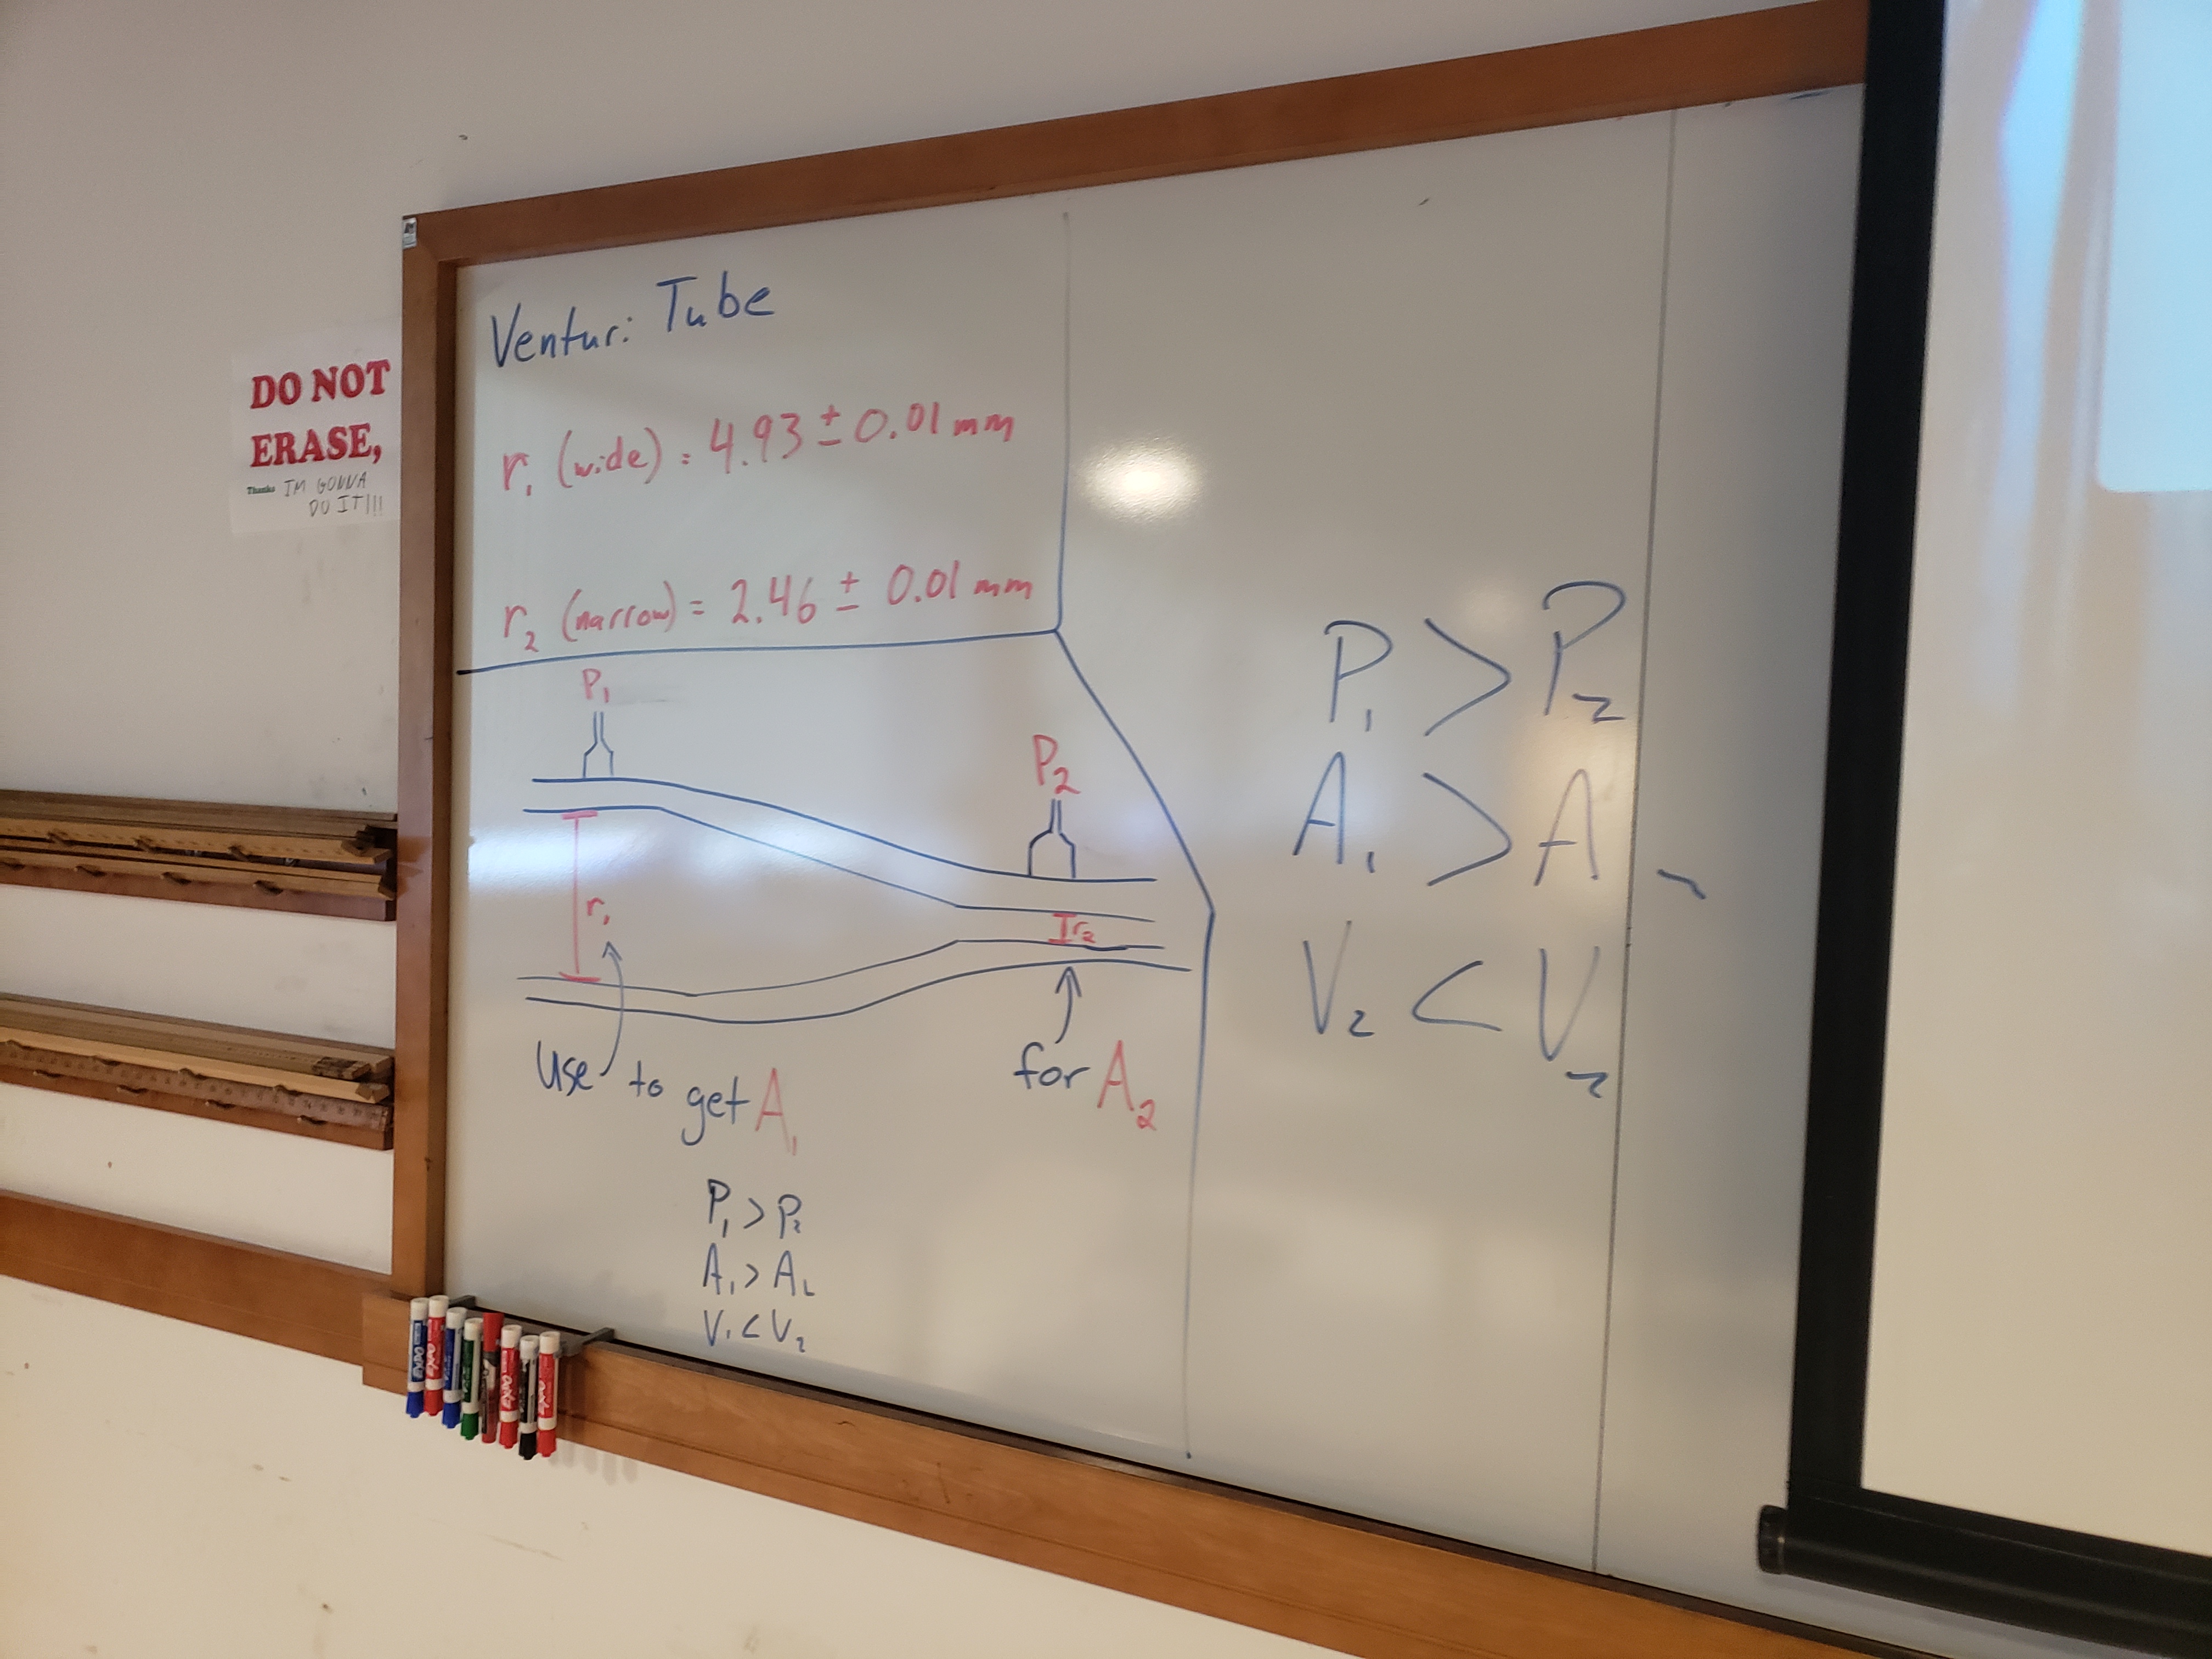 DO NOT
ERASE,
Thanks IM GONNA
DO IT!!!
Venturi Tube
r₁ (wide) = 4.93 ± 0.01 mm
r₂ (narrow) = 2.46 ± 0.01 mm
P₁
P₂
r₁
r₂
Use to get A₁
for A₂
P₁ > P₂
A₁ > A₂
V₁ < V₂
P₁ > P₂
A₁ > A
V₂ < V₂
EXPO